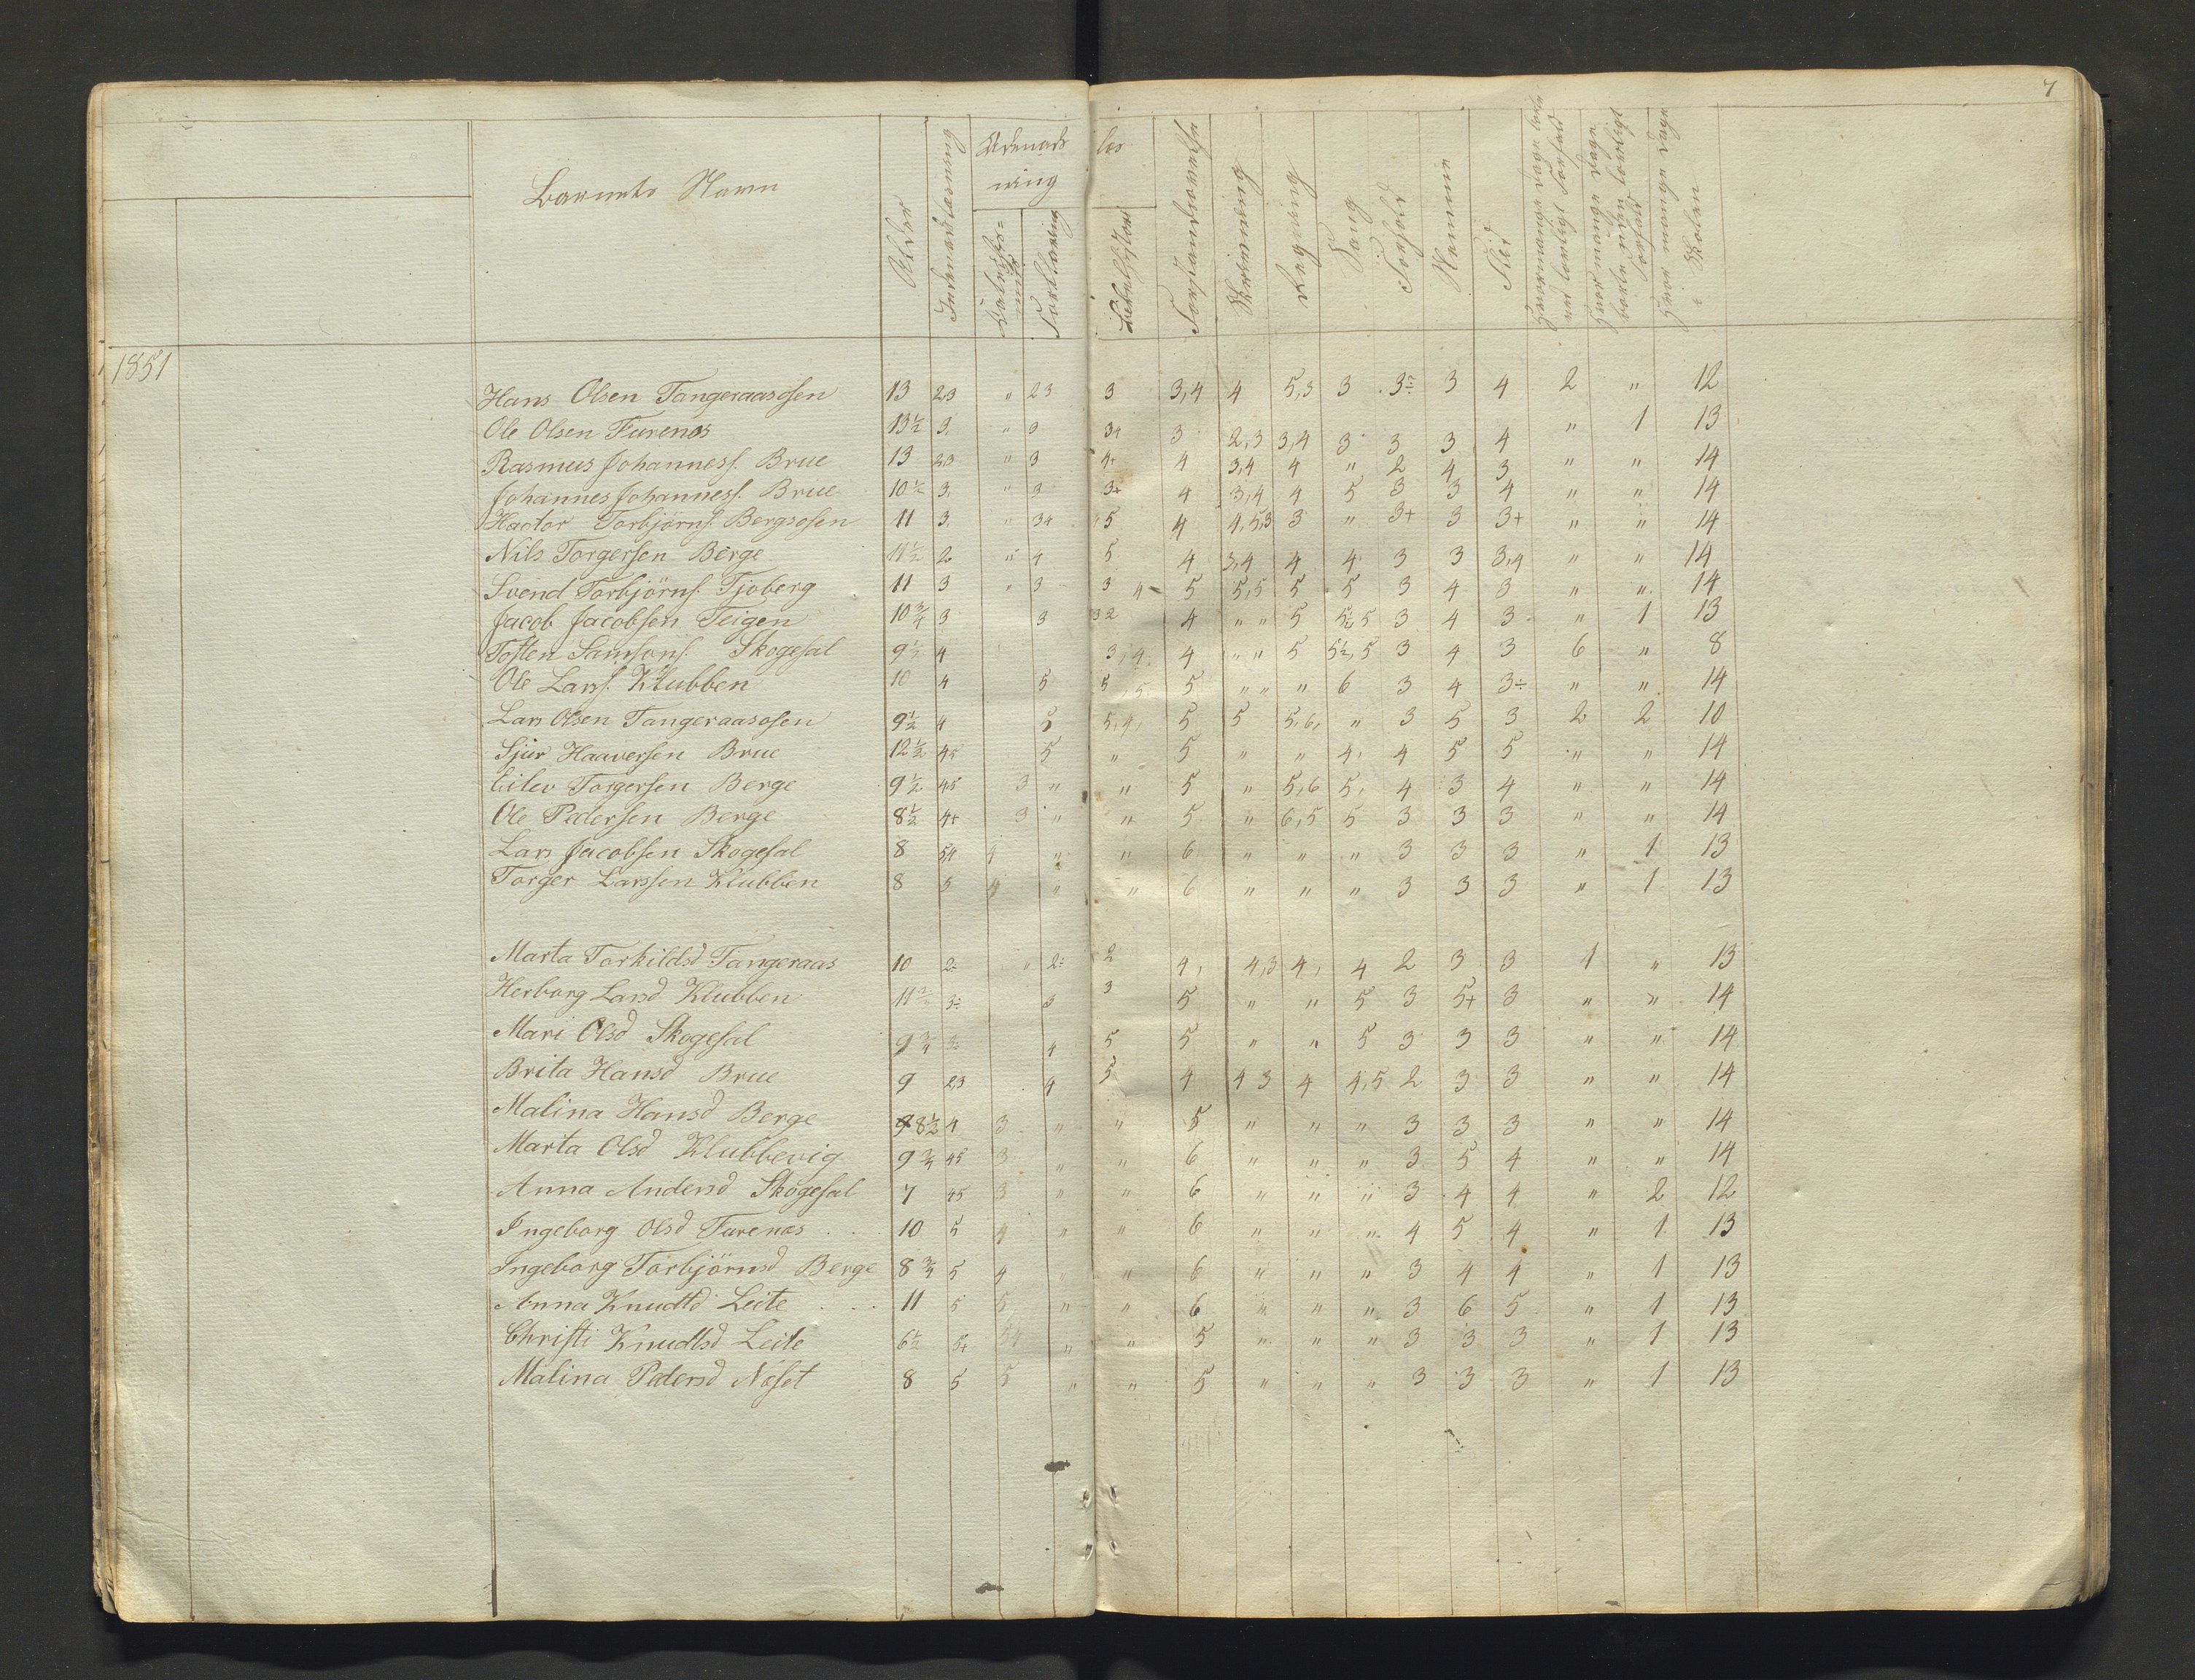 7
Barnets Navn
Alder
Indenadslæsning
Udenads læs
ning
Forklaring
Bibelhistori
Skrivning
Regning
Sang
Forhold
Nemme
Flid
Hvor mange Dage
i Skolen
1851
Hans Olsen Tangeraasosen 13 23 " 23 3 3,4 4 5,3 3 3÷ 3 4 2 " 12
Ole Olsen Furenæs 13½ 3. " 3 3+ 3 2,3 3,4 3 3 3 4 " 1 13
Rasmus Johanness. Brue 13 23 " 3 4+ 4 3,4 4 " 2 4 3 " " 14
Johannes Johanness. Brue 10½ 3. " 3 3+ 4 3,4 4 5 3 3 4 " " 14
Hactor Torbjörns. Bergsosen 11 3. " 34 5 4 4,5,3 3 " 3+ 3 3+ " " 14
Nils Torgersen Berge 11½ 2 " 4 5 4 3,4 4 4 3 3 3,4 " " 14
Svend Torbjörns. Tjoberg 11 3 " 3 3 4 5 5,5 5 5 3 4 3 " " 14
Jacob Jacobsen Teigen 10¾ 3 3 32 4 " " 5 5½ 5 3 4 3 " 1 13
Tosten Samsons. Skogesal 9½ 4 3,4 4 " " 5 5½,5 3 4 3 6 " 8
Ole Larss. Klubben 10 4 5 5,5 5 " " " 6 3 4 3÷ " " 14
Lars Olsen Tangeraasosen 9½ 4 5 5,4, 5 5 5,6, " 3 5 3 2 2 10
Sjur Haaversen Brue 12½ 45 5 " 5 " " 4, 4 5 5 " " 14
Eilev Torgersen Berge 9½ 45 3 " " 5 " 5,6 5, 4 3 4 " " 14
Ole Pedersen Berge 8½ 4+ 3 " " 5 " 6,5 5 3 3 3 " " 14
Lars Jacobsen Skogesal 8 54 4 " " 6 " " " 3 3 3 " 1 13
Torger Larssen Klubben 8 5 4 " " 6 " " " 3 3 3 " 1 13
Marta Torkildsd Tangeraas 10 2÷ " 2÷ 2 4, 4,3 4, 4 2 3 3 1 " 13
Herborg Larsd Klubben 11½ 3÷ 3 3 5 " " 5 3 5+ 3 " " 14
Mari Olsd Skogesal 9¾ 3÷ 4 5 5 " " 5 3 3 3 " " 14
Brita Hansd Brue 9 23 4 5 4 4 3 4 4,5 2 3 3 " " 14
Malina Hansd Berge 8½ 4 3 " " 5 " " " 3 3 3 " " 14
Marta Olsd Klubbevig 9¾ 45 3 " " 6 " " " 3 5 4 " " 14
Anna Andersd Skogesal 7 45 3 " " 6 " " " 3 4 4 " 2 12
Ingeborg Olsd Furenæs 10 5 4 " " 6 " " " 4 5 4 " 1 13
Ingeborg Torbjörnsd Berge 8¾ 5 4 " " 6 " " " 3 4 4 " 1 13
Anna Knudtd Leite 11 5 5 " " 6 " " " 3 6 5 " 1 13
Christi Knudtsd Leite 6½ 5+ 54 " " 5 " " " 3 3 3 " 1 13
Malina Pedersd Neset 8 5 5 " " 5 " " " 3 3 3 " 1 13